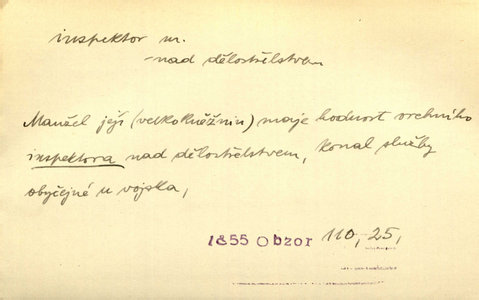 inspektor m.
-nad dělostřelstvem
Manžel její (velkokněžnin) maje hodnost vrchního
inspektora nad dělostřelstvem, konal služby
obyčejné u vojska,
1855 Obzor 110, 25,